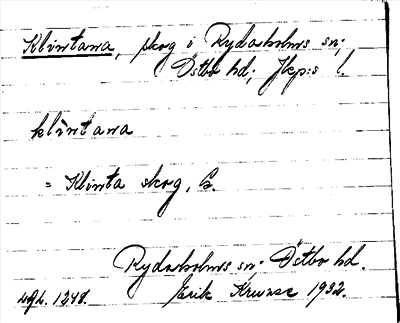 Klintawa, skog i Rydaholms sn;
Östbo hd; Jkp:s l.
klintawa
= Klinta skog, B.
Rydaholms sn; Östbo hd.
Erik Kruuse 1932.
1248.